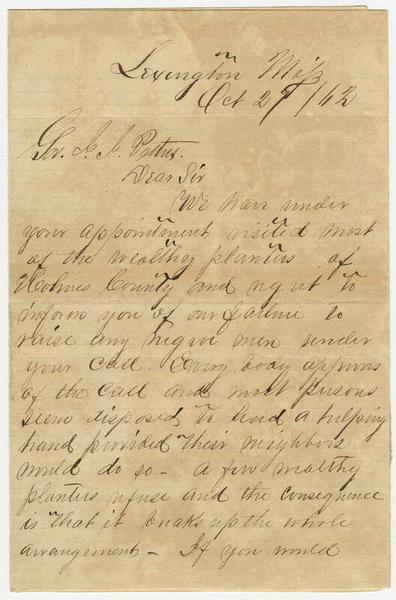 Lexington Miss
Oct 29/62
Gov. J. J. Pettus.
Dear Sir
We have under
your appointment visited most
of the wealthy planters of
Holmes County and regret to
inform you of our failure to
raise any negroe men under
your call. Every body approves
of the call and most persons
seem disposed to lend a helping
hand provided their neighbors
would do so - a few wealthy
planters refuse and the consequence
is that it breaks up the whole
arrangement - If you would